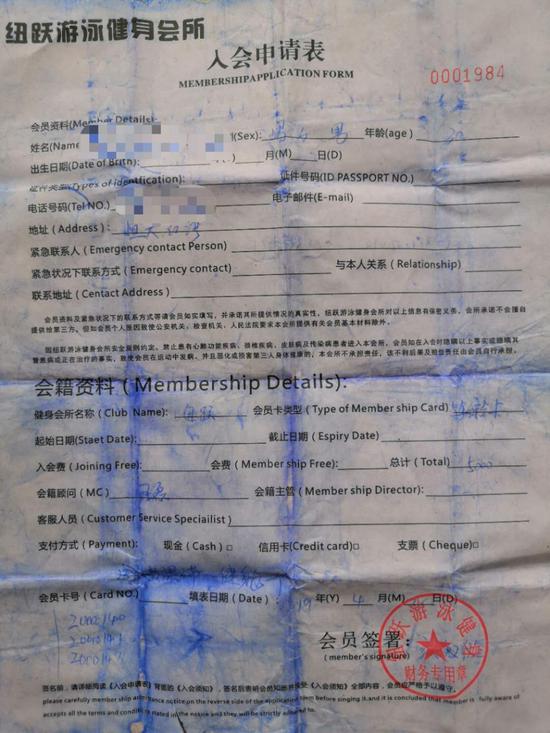 纽跃游泳健身会所
入会申请表
MEMBERSHIPAPPLICATION FORM
0001984
会员资料(Member Details):
姓名(Name (Sex): 男 年龄(age)
出生日期(Date of Brith): 月(M) 日(D)
证件类型(Types of identfication): 证件号码(ID PASSPORT NO.)
电话号码(Tel NO.) 电子邮件(E-mail)
地址(Address):
紧急联系人(Emergency contact Person)
紧急状况下联系方式(Emergency contact) 与本人关系(Relationship)
联系地址(Centact Address)
会员资料及紧急状况下的联系方式等请会员如实填写，并承诺其所提供情况的真实性，纽跃游泳健身会所对以上信息有保密义务，会所承诺不会擅自
提供给第三方。但如会员个人原因致使公安机关，检查机关、人民法院要求本会所提供有关会员基本材料除外。
因纽跃游泳健身会所安全规则约定，禁止患有心肺功能疾病、颈椎疾病，皮肤病及传染病患者进入本会所，会员如在入会时隐瞒以上事实或隐瞒其
曾患病或正在治疗的事实，致使会员在运动中发病、并且恶化或损害第三人身体健康的，本会所不承担责任，该不利后果及赔偿责任由会员自行承担。
会籍资料(Membership Details):
健身会所名称(Club Name): 会员卡类型(Type of Member ship Card)
起始日期(Staet Date): 截止日期(Expiry Date):
入会费(Joining Free): 会费(Member ship Free): 总计(Total) 5000
会籍顾问(MC) 会籍主管(Member ship Director):
客服人员(Customer Service Speciailist)
支付方式(Payment): 现金(Cash)□ 信用卡(Credit card)□ 支票(Cheque)□
会员卡号(Card NO.) 填表日期(Date): 19 年(Y) 4 月(M) 日(D)
会员签署:
(member's signature)
纽跃游泳健身
财务专用章
签名前，请详细阅读《入会申请表》背面的《入会须知》，签名后表明会员知悉并接受《入会须知》全部内容，会员应严格予以遵守。
please carefully member ship attendance notice on the reverse side of the application form before singing it.and it is concluded that member is fully aware of
accepts all the terms and conditin is stated in the notice and they will be strictly adhered to.